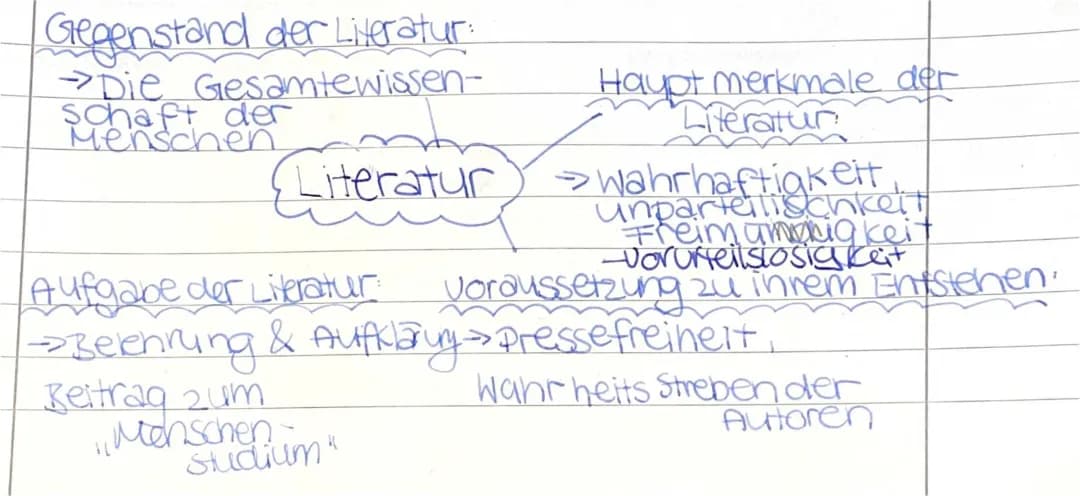 Gegenstand der Literatur:
→ Die Gesamtewissen-
schaft der
Menschen
Hauptmerkmale der
Literatur:
Literatur
→ Wahrhaftigkeit,
unparteilischkeit
Freimütigkeit
-vorurteilslosigkeit
Aufgabe der Literatur:
→ Belehrung & Aufklärung
Beitrag zum
„Menschen-
studium"
Voraussetzung zu ihrem Entstehen:
→ Pressefreiheit,
Wahrheits Streben der
Autoren